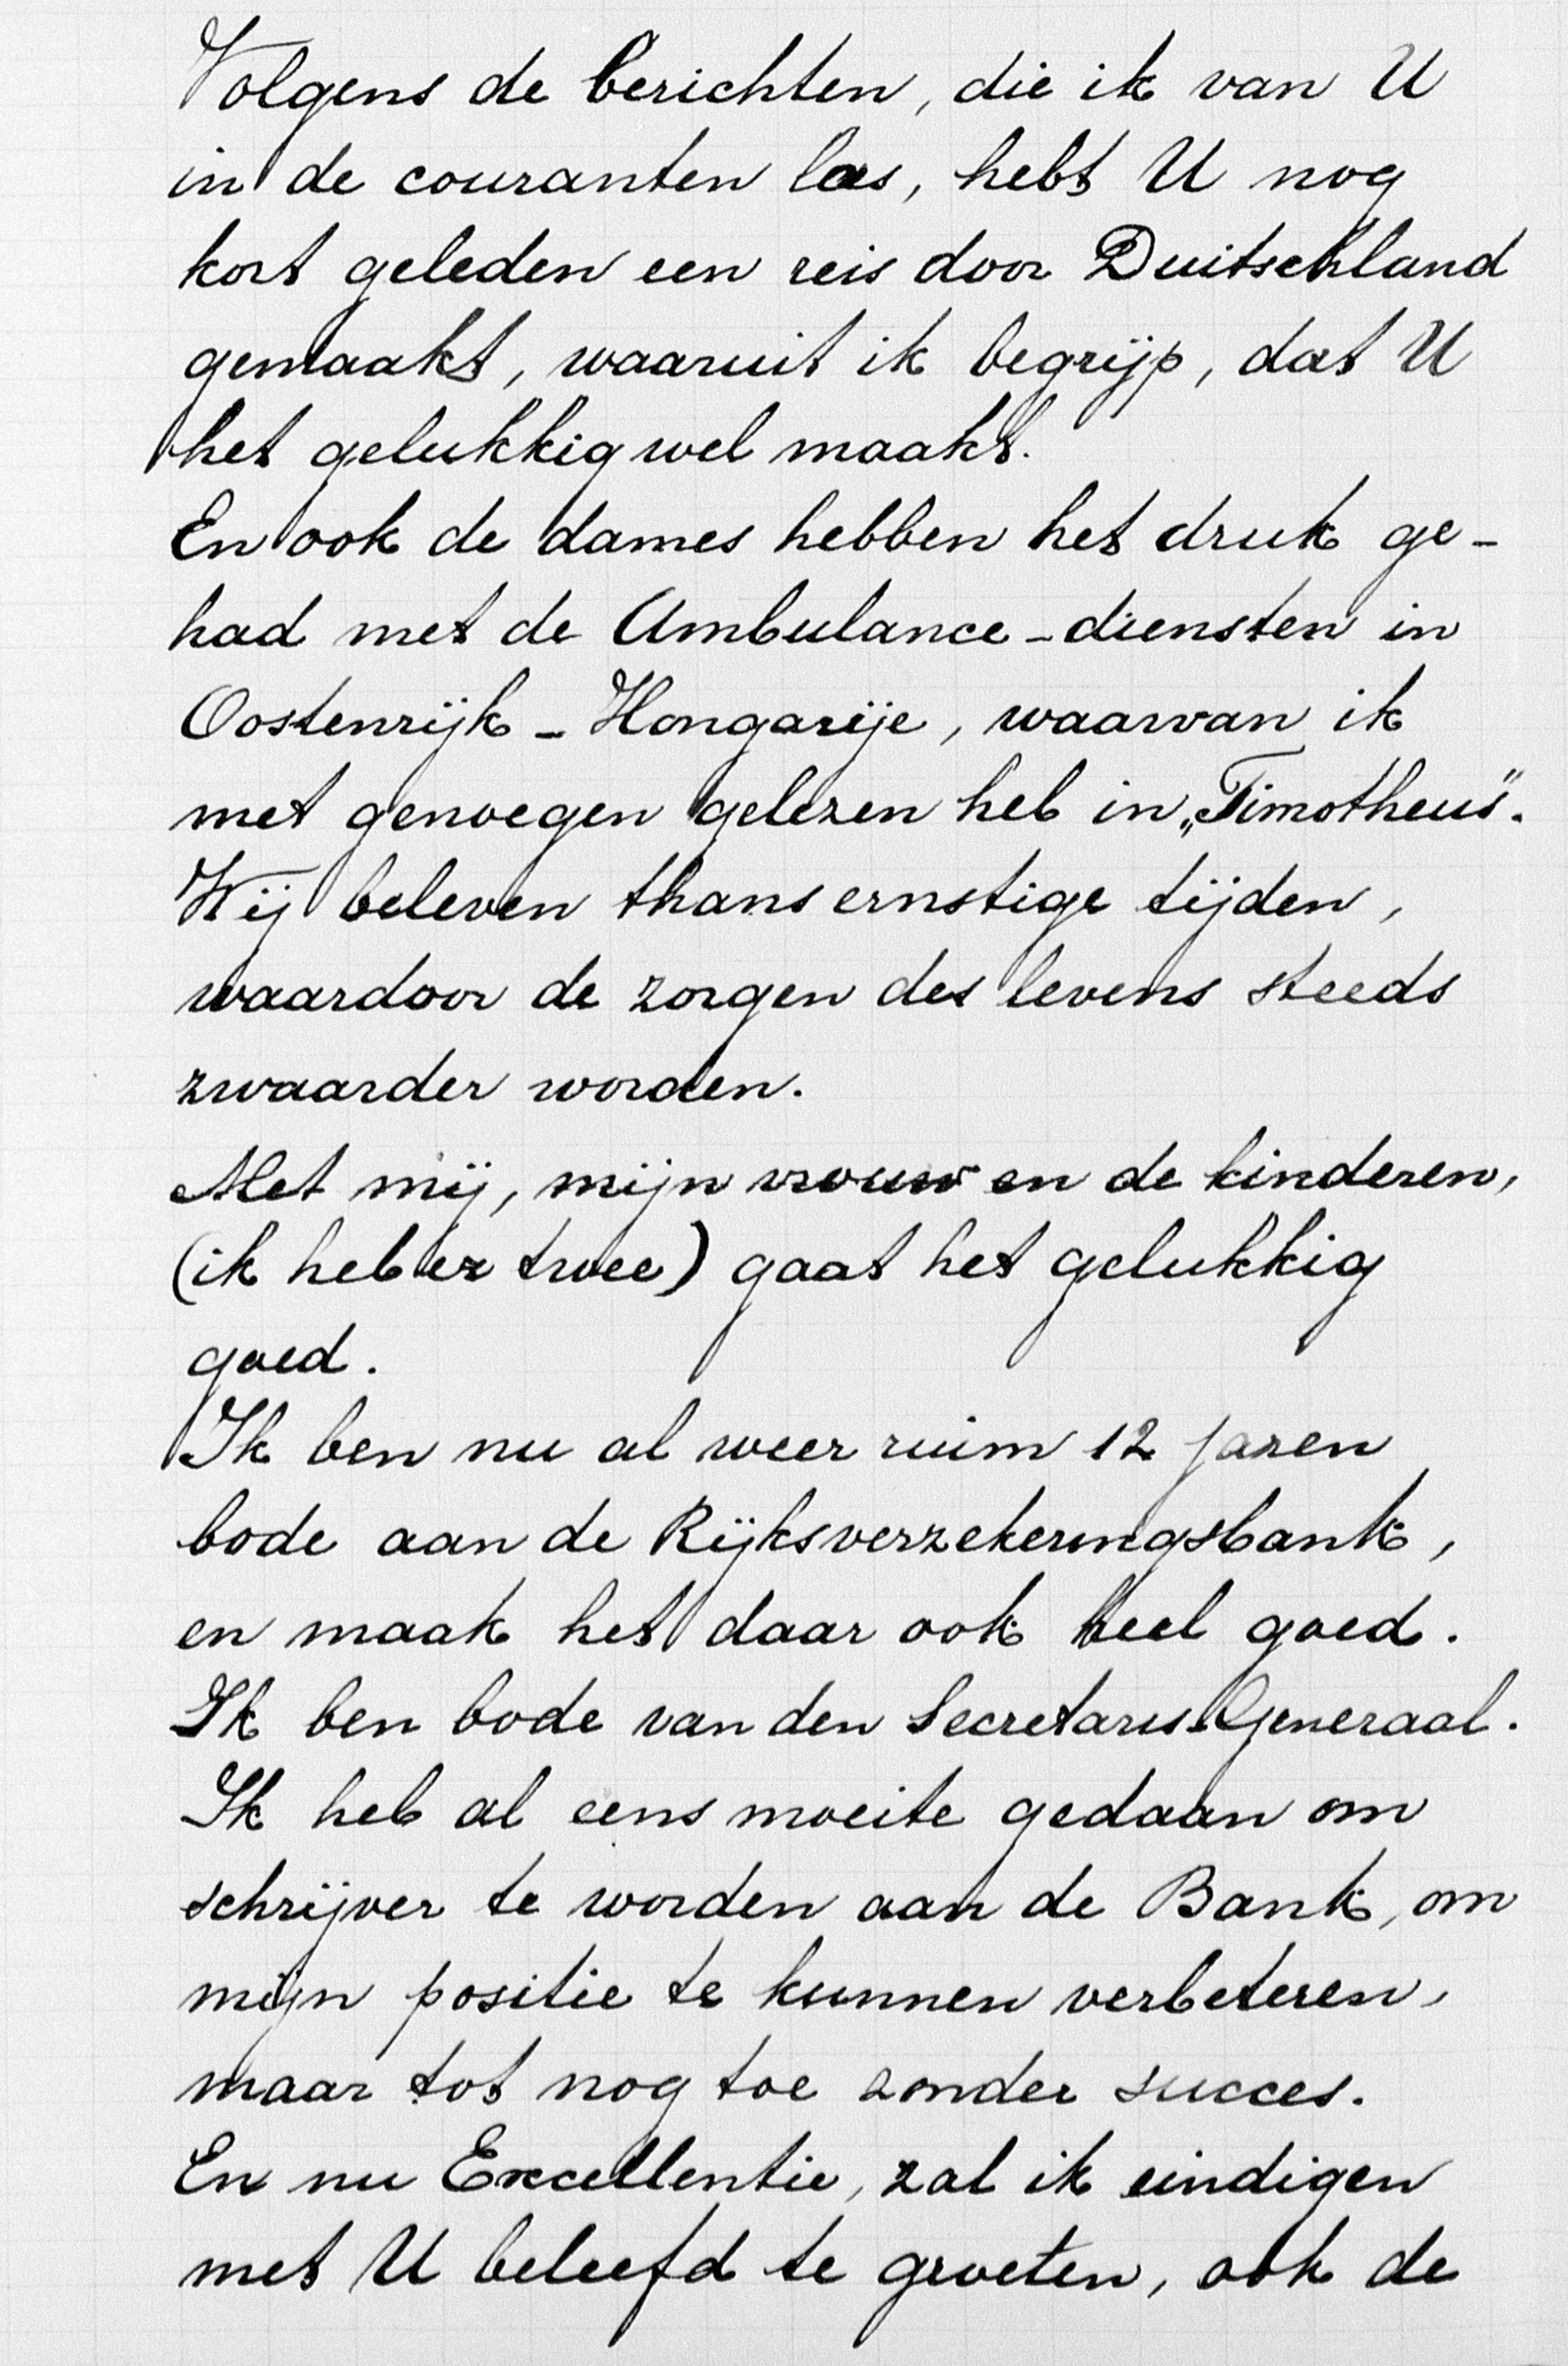 Volgens de berichten, die ik van U
in de couranten las, hebt U nog
kort geleden een reis door Duitschland
gemaakt, waaruit ik begrijp, dat U
het gelukkig wel maakt.
En ook de dames hebben het druk ge-
had met de Ambulance-diensten in
Oostenrijk-Hongarije, waarvan ik
met genoegen gelezen heb in „Timotheus".
Wij beleven thans ernstige tijden,
waardoor de zorgen des levens steeds
zwaarder worden.
Met mij, mijn vrouw en de kinderen,
(ik heb er twee) gaat het gelukkig
goed.
Ik ben nu al weer ruim 12 jaren
bode aan de Rijksverzekeringsbank,
en maak het daar ook heel goed.
Ik ben bode van den Secretaris-Generaal.
Ik heb al eens moeite gedaan om
schrijver te worden aan de Bank, om
mijn positie te kunnen verbeteren,
maar tot nog toe zonder succes.
En nu Excellentie, zal ik eindigen
met U beleefd te groeten, ook de